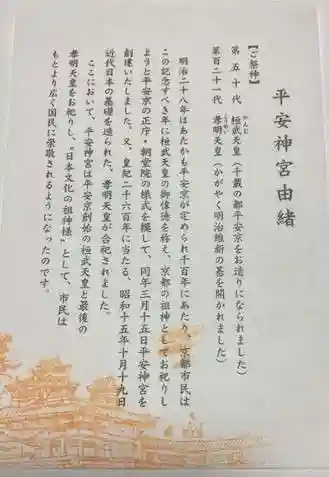 平安神宮由緒
【ご祭神】
第五十代　桓武天皇（千載の都平安京をお造りになられました）
かんむ
第百二十一代　孝明天皇（かがやく明治維新の基を開かれました）
こうめい
明治二十八年はあたかも平安京が定められ千百年にあたり、京都市民は
この記念すべき年に桓武天皇の御偉徳を称え、京都の祖神としてお祀りし
ようと平安京の正庁・朝堂院の様式を模して、同年三月十五日平安神宮を
創建いたしました。又、皇紀二千六百年に当たる、昭和十五年十月十九日
近代日本の基礎を造られた、孝明天皇が合祀されました。
ここにおいて、平安神宮は平安京創始の桓武天皇と最後の
孝明天皇をお祀りし、"日本文化の祖神様"として、市民は
もとより広く国民に崇敬されるようになったのです。